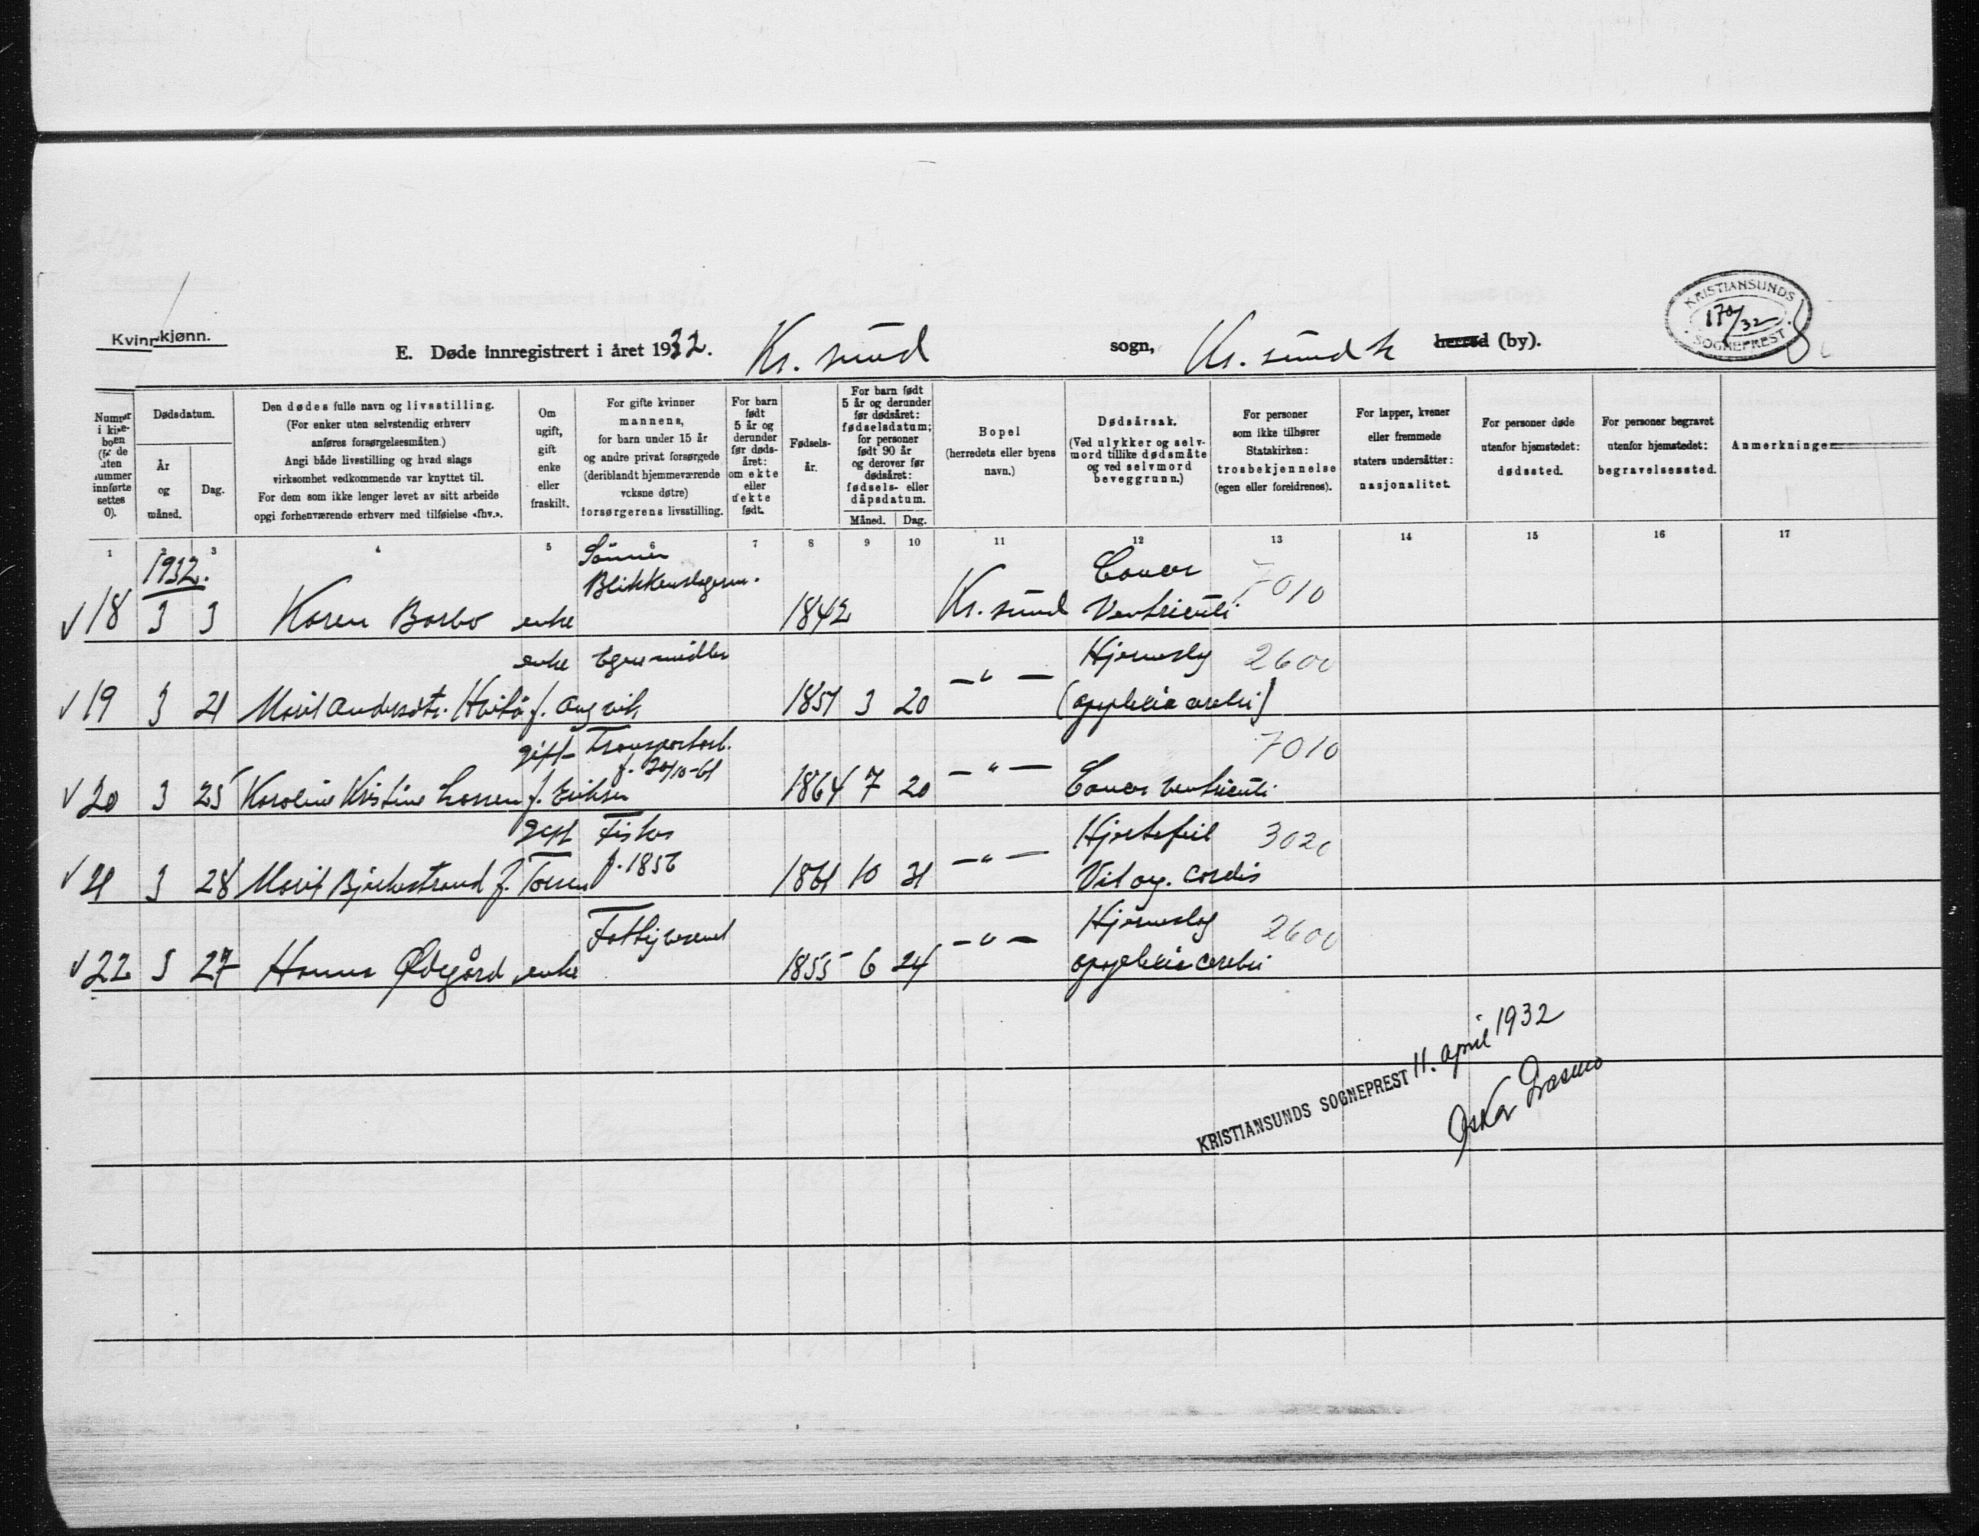 KRISTIANSUNDS
170/32
SOGNEPREST
Kvinnkjønn.
E. Døde innregistrert i året 1932. Kr. sund sogn, Kr. sund k herred (by).
Nummer i kirkeboen (for de uten nummer innførte settes 0).
Dødsdatum.
År og måned.
Dag.
Den dødes fulle navn og livsstilling.
(For enker uten selvstendig erhverv
anføres forsørgelsesmåten.)
Angi både livsstilling og hvad slags
virksomhet vedkommende var knyttet til.
For dem som ikke lenger levet av sitt arbeide
opgi forhenværende erhverv med tilføielse «fhv.».
Om
ugift,
gift
enke
eller
fraskilt.
For gifte kvinner
mannens,
for barn under 15 år
og andre privat forsørgede
(deriblandt hjemmeværende
voksne døtre)
forsørgerens livsstilling.
For barn
født
5 år og
derunder
før døds-
året:
om ekte
eller
uekte
født.
Fødsels-
år.
For barn født
5 år og derunder
før dødsåret:
fødselsdatum;
for personer
født 90 år
og derover før
dødsåret:
fødsels- eller
dåpsdatum.
Måned.
Dag.
Bopel
(herredets eller byens
navn.)
Dødsårsak.
(Ved ulykker og selv-
mord tillike dødsmåte
og ved selvmord
beveggrunn.)
For personer
som ikke tilhører
Statskirken:
trosbekjennelse
(egen eller foreldrenes).
For lapper, kvener
eller fremmede
staters undersåtter:
nasjonalitet.
For personer døde
utenfor hjemstedet:
dødssted.
For personer begravet
utenfor hjemstedet:
begravelsessted.
Anmerkninger
1 3 4 5 6 7 8 9 10 11 12 13 14 15 16 17
1932.
Blikkenslagerm.
18 3 3 Karen Barbo enke 1842 Kr. sund Cancer Ventriculi 7010
enke
19 3 21 Marit Andersdtr. f. Angvik 1851 3 20 —"— Hjerneslag (apoplexia cerebri) 2600
gift Transportarb.
20 3 25 Karoline Kristine Larsen f. Eriksen 1864 7 20 —"— Cancer ventriculi 7010
gift Fisker
f. 1856
21 3 28 Marit Bjerkestrand f. 1861 10 31 —"— Hjertefeil Vit. cordis 3020
22 3 27 Hanna Ødegård enke 1855 6 24 —"— Hjerneslag apoplexia cerebri 2600
KRISTIANSUNDS SOGNEPREST 11. april 1932
Oskar